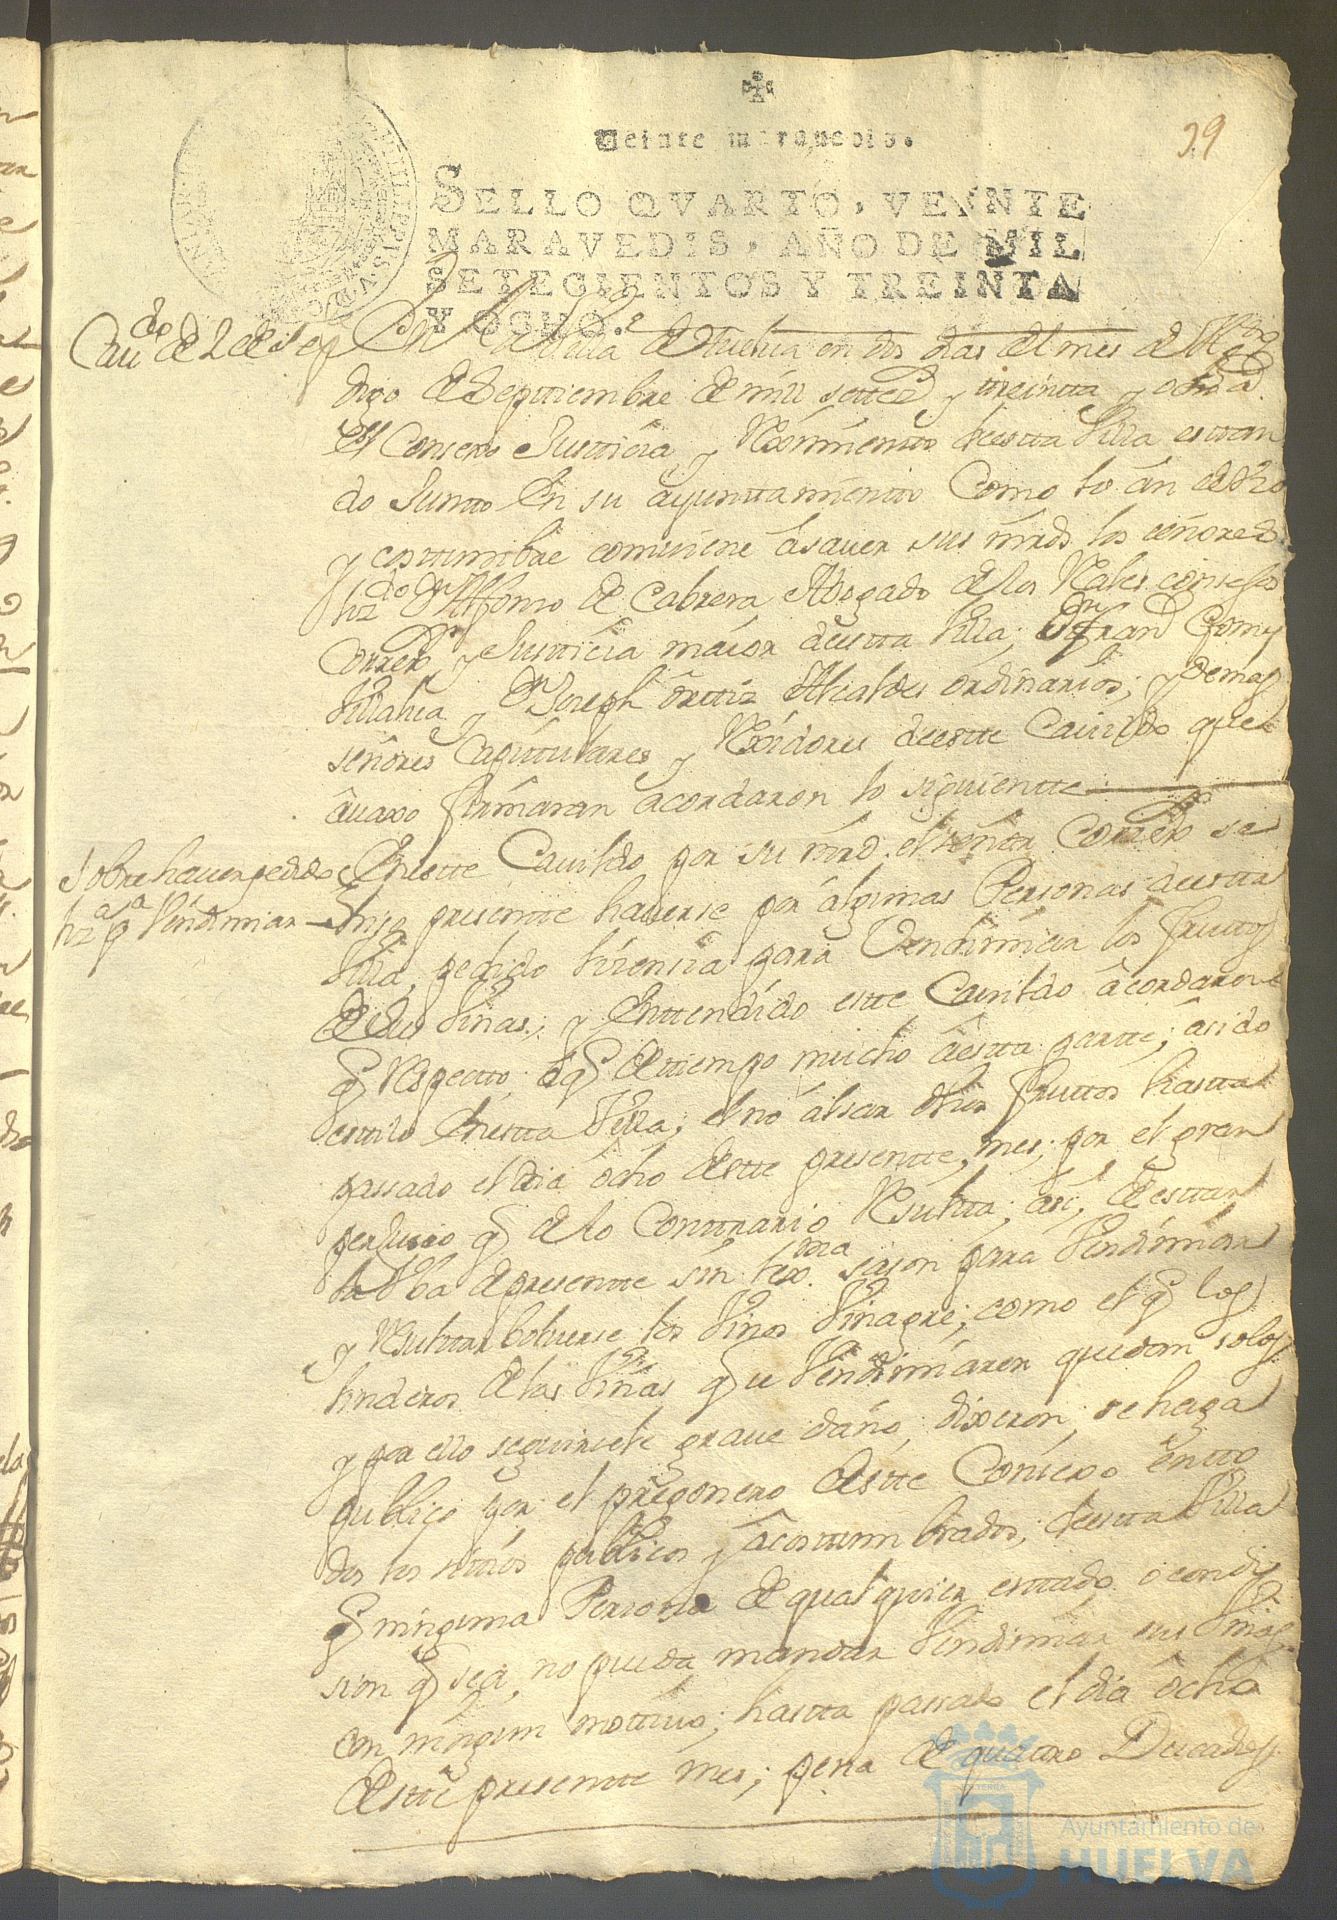 39
Veinte maravedis.
SELLO QVARTO, VEINTE
MARAVEDIS, AÑO DE MIL
SETECIENTOS Y TREINTA
Y OCHO.
PHILIPPVS V D G
Cavdo de 2 de sep
En la Villa de Huelva en dos dias del mes de
digo de Septtiembre de mill settes y treintta y ocho as
el Consexo Justticia y Reximientto deestta Villa esttan
do Juntto En su ayunttamientto Como lo an de Uzo
y costtumbre comviene ásaver sus mrds los señores
lizdo Dn Alfonso de Cabrera Abogado de los Rales consejos
Correxr y Justticia maior deestta Villa, Dn Frando Gomz
Villalva y Dn Joseph Orttiz Alcaldes ordinarios; y demas
señores Capittulares y Rexidores deestte Cavildo que
âvaxo firmaran acordaron lo siguientte
Sobre haver pedido
liza pa Vendimiar
Eneestte Cavildo por su mrd el señor Correxr se
hizo presentte haverse por algunas Personas deestta
Villa, pedido lizencia para Vendimiar los fruttos
de sus Viñas; y Enttendido estte Cavildo acordaron
q Respectto, a q de ttiempo mucho âestta partte; asido
esttilo Enestta Villa; el no alsar dhos fruttos hastta
passado el dia ocho deestte presentte mes; por el gran
perjuicio q de lo Conttrario Resultta; asi, de esttar
la Vba de presentte sin lexma sason para Vendimiar
y Resulttar bolverse los Vinos Vinagre; como el q los
linderos de las Viñas que Vendimiaren quedan solos
y por ello seguirsele grave daño, dixeron; se haga
publico por el pregonero deestte Consexo en tto
dos los sitios publicos y acosttumbrados, deestta Villa
q ninguna Persona de qualquier esttado o condi
sion q sea, no pueda mandar Vendimiar sus Viñas
con ningun mottivo; hastta passado el dia ocho
deestte presentte mes; pena de quattro Ducados
Ayuntamiento de
HUELVA